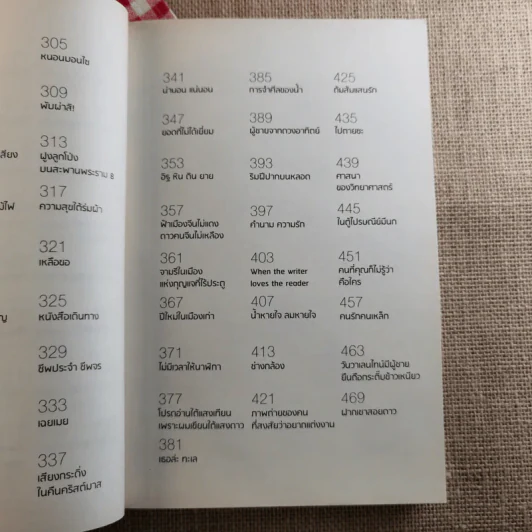 305
หนอนมอนไข
309
พับผ่าสิ!
313
ฝูงลูกโป่ง
บนสะพานพระราม 8
317
ความสุขใต้ร่มผ้า
321
เหลือขอ
325
หนังสือเดินทาง
329
ชีพประจำ ชีพจร
333
เฉยเมย
337
เสียงกระดิ่ง
ในคืนคริสต์มาส
341
น่านอน แน่นอน
347
ยอดที่ไม่ได้เยี่ยม
353
อิฐ หิน ดิน ยาย
357
ฟ้าเมืองจีนไม่แดง
ดาวคนจีนไม่เหลือง
361
จามรีในเมือง
แห่งกุญแจที่ไร้ประตู
367
ปีใหม่ในเมืองเก่า
371
ไม่มีเวลาให้นาฬิกา
377
โปรดอ่านใต้แสงเทียน
เพราะผมเขียนใต้แสงดาว
381
เธอล่ะ ทะเล
385
การจำศีลของน้ำ
389
ผู้ชายจากดวงอาทิตย์
393
ริมฝีปากบนหลอด
397
คำนาม ความรัก
403
When the writer
loves the reader
407
น้ำหายใจ ลมหายใจ
413
ช่างกล้อง
421
ภาพถ่ายของคน
ที่สงสัยว่าอยากแต่งงาน
425
ต้มส้มแสนรัก
435
ไปตายซะ
439
ศาสนา
ของวิทยาศาสตร์
445
ในตู้ไปรษณีย์มีนก
451
คนที่คุณก็ไม่รู้ว่า
คือใคร
457
คนรักคนเหล็ก
463
วันวาเลนไทน์มีผู้ชาย
ยืนถือกระติ๊บข้าวเหนียว
469
ฝากเขาสอยดาว